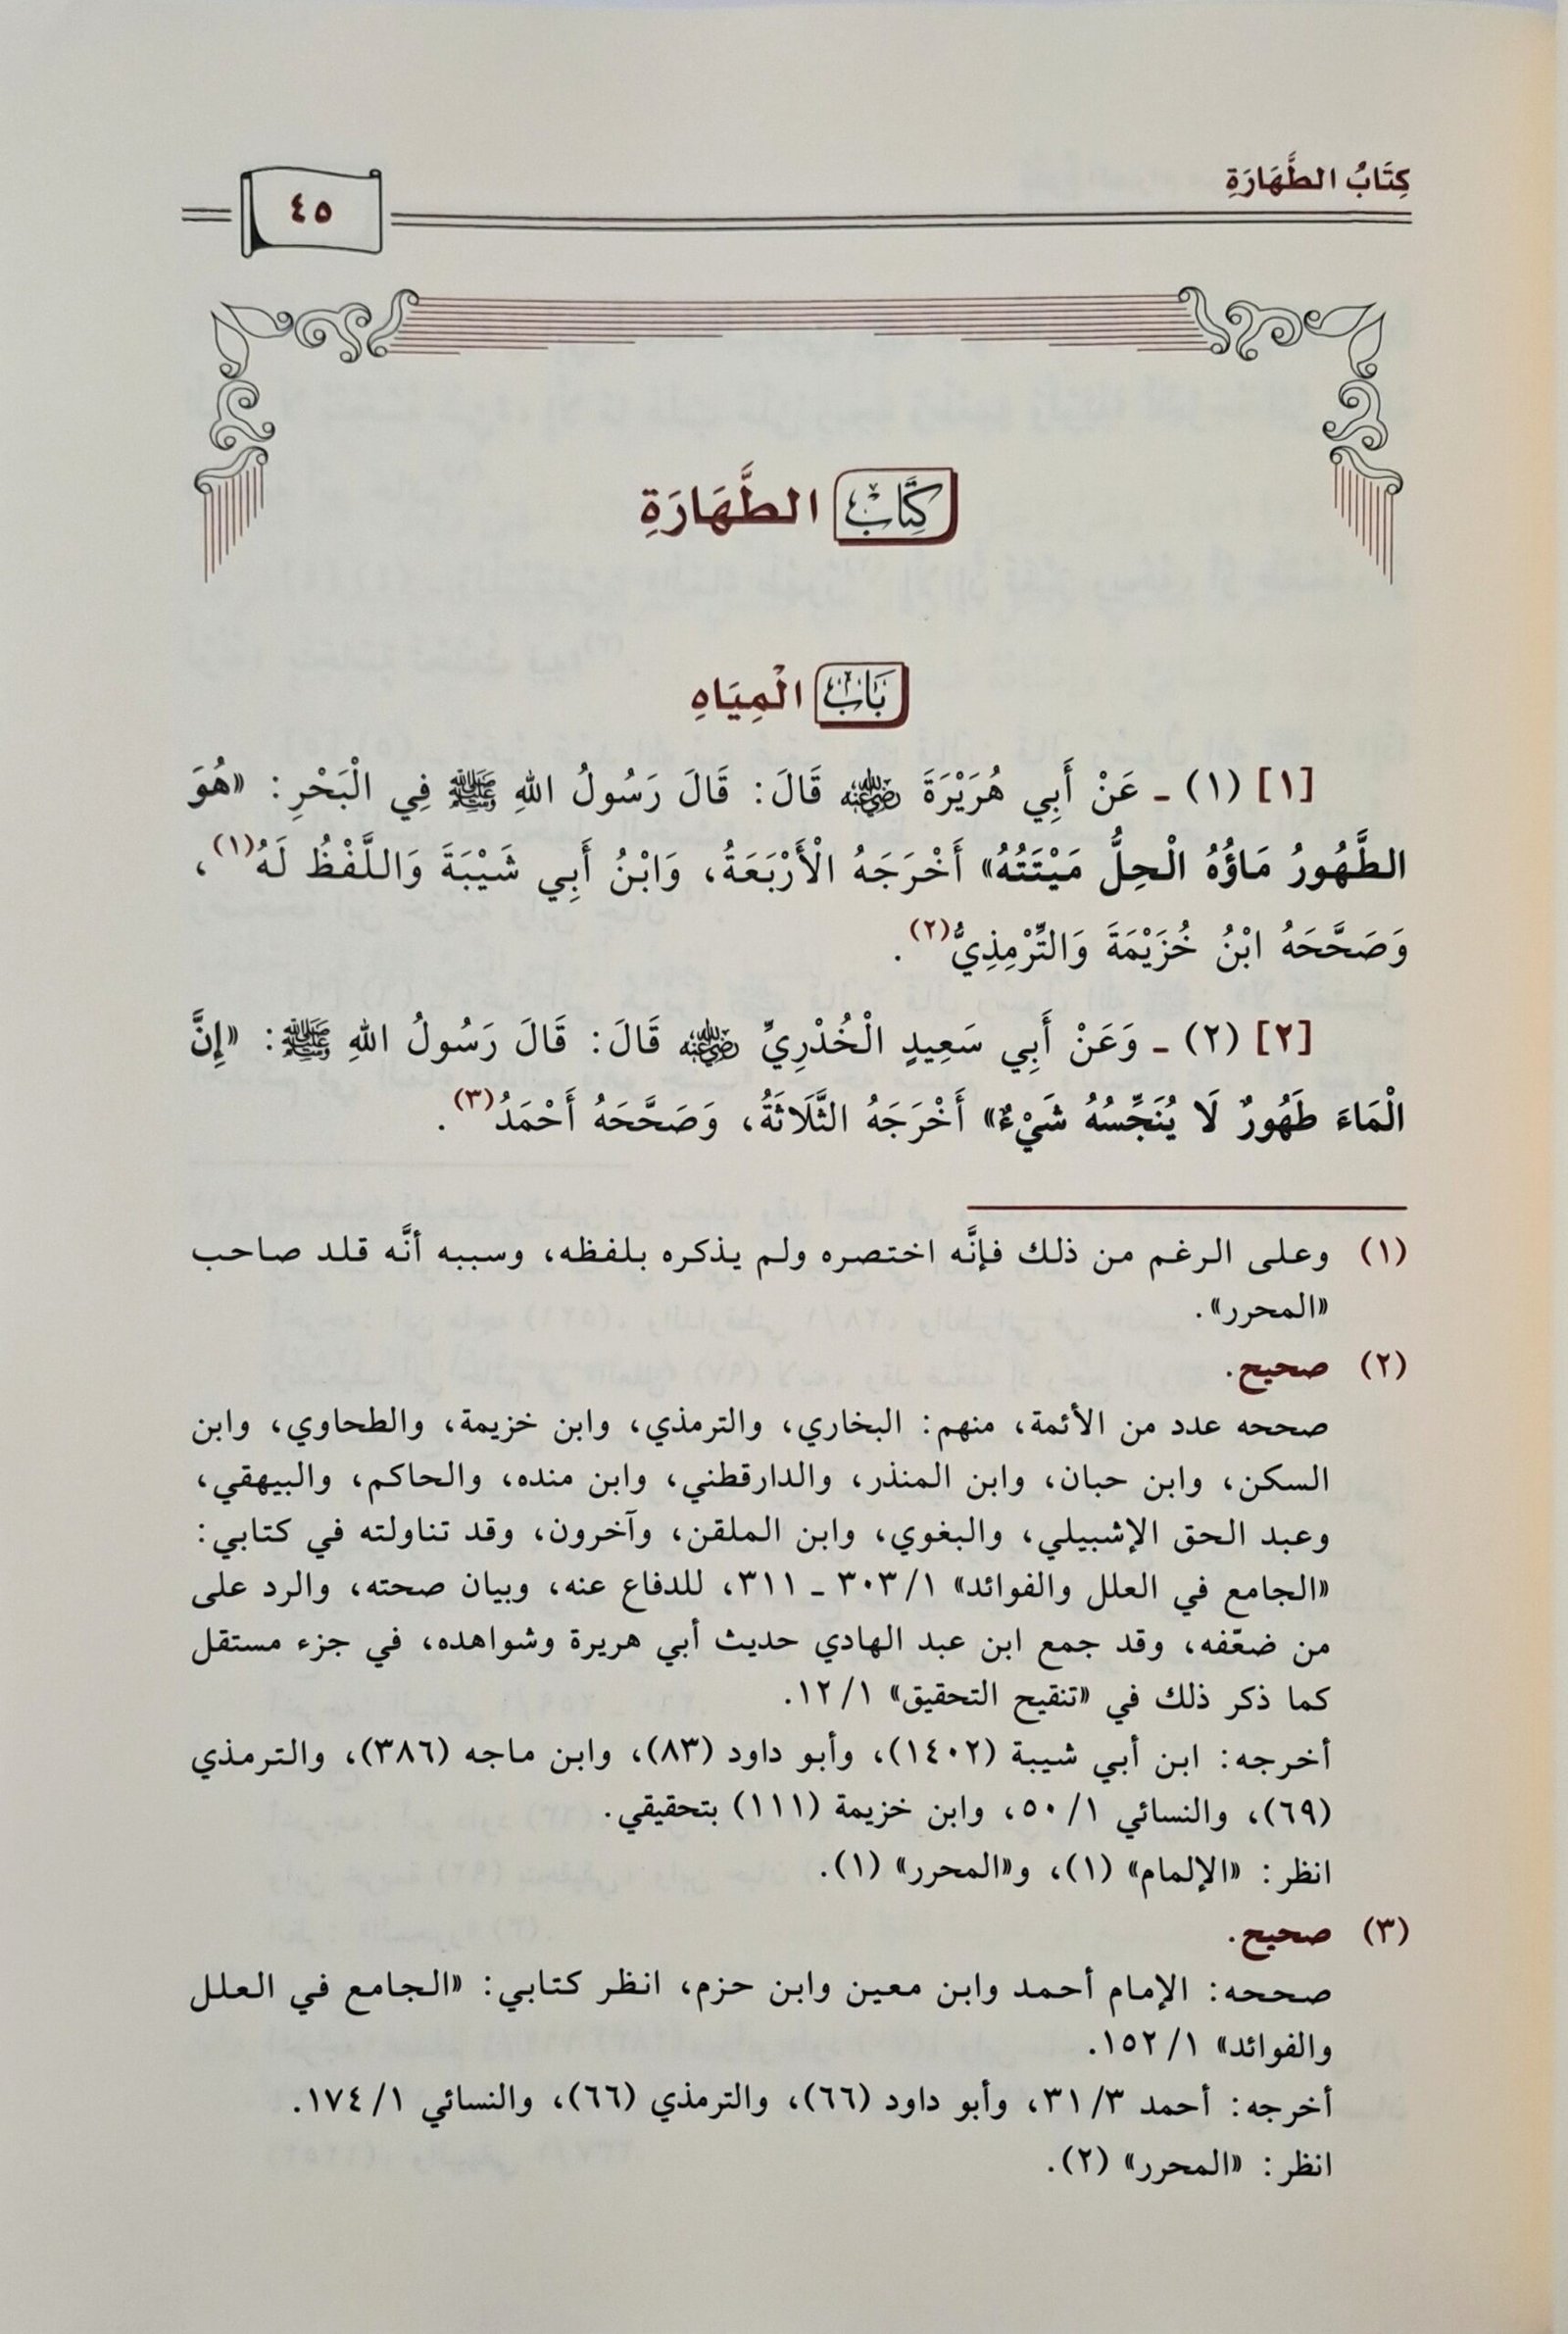 كِتَابُ الطَّهَارَةِ
٤٥
كِتَابُ الطَّهَارَةِ
بَابُ الْمِيَاهِ
[١] (١) ـ عَنْ أَبِي هُرَيْرَةَ رضي الله عنه قَالَ: قَالَ رَسُولُ اللهِ ﷺ فِي الْبَحْرِ: «هُوَ
الطَّهُورُ مَاؤُهُ الْحِلُّ مَيْتَتُهُ» أَخْرَجَهُ الْأَرْبَعَةُ، وَابْنُ أَبِي شَيْبَةَ وَاللَّفْظُ لَهُ(١)،
وَصَحَّحَهُ ابْنُ خُزَيْمَةَ وَالتِّرْمِذِيُّ(٢).
[٢] (٢) ـ وَعَنْ أَبِي سَعِيدٍ الْخُدْرِيِّ رضي الله عنه قَالَ: قَالَ رَسُولُ اللهِ ﷺ: «إِنَّ
الْمَاءَ طَهُورٌ لَا يُنَجِّسُهُ شَيْءٌ» أَخْرَجَهُ الثَّلَاثَةُ، وَصَحَّحَهُ أَحْمَدُ(٣).
(١) وعلى الرغم من ذلك فإنَّه اختصره ولم يذكره بلفظه، وسببه أنَّه قلد صاحب
«المحرر».
(٢) صحيح.
صححه عدد من الأئمة، منهم: البخاري، والترمذي، وابن خزيمة، والطحاوي، وابن
السكن، وابن حبان، وابن المنذر، والدارقطني، وابن منده، والحاكم، والبيهقي،
وعبد الحق الإشبيلي، والبغوي، وابن الملقن، وآخرون، وقد تناولته في كتابي:
«الجامع في العلل والفوائد» ١/ ٣٠٣ ـ ٣١١، للدفاع عنه، وبيان صحته، والرد على
من ضعّفه، وقد جمع ابن عبد الهادي حديث أبي هريرة وشواهده، في جزء مستقل
كما ذكر ذلك في «تنقيح التحقيق» ١/ ١٢.
أخرجه: ابن أبي شيبة (١٤٠٢)، وأبو داود (٨٣)، وابن ماجه (٣٨٦)، والترمذي
(٦٩)، والنسائي ١/ ٥٠، وابن خزيمة (١١١) بتحقيقي.
انظر: «الإلمام» (١)، و«المحرر» (١).
(٣) صحيح.
صححه: الإمام أحمد وابن معين وابن حزم، انظر كتابي: «الجامع في العلل
والفوائد» ١/ ١٥٢.
أخرجه: أحمد ٣/ ٣١، وأبو داود (٦٦)، والترمذي (٦٦)، والنسائي ١/ ١٧٤.
انظر: «المحرر» (٢).